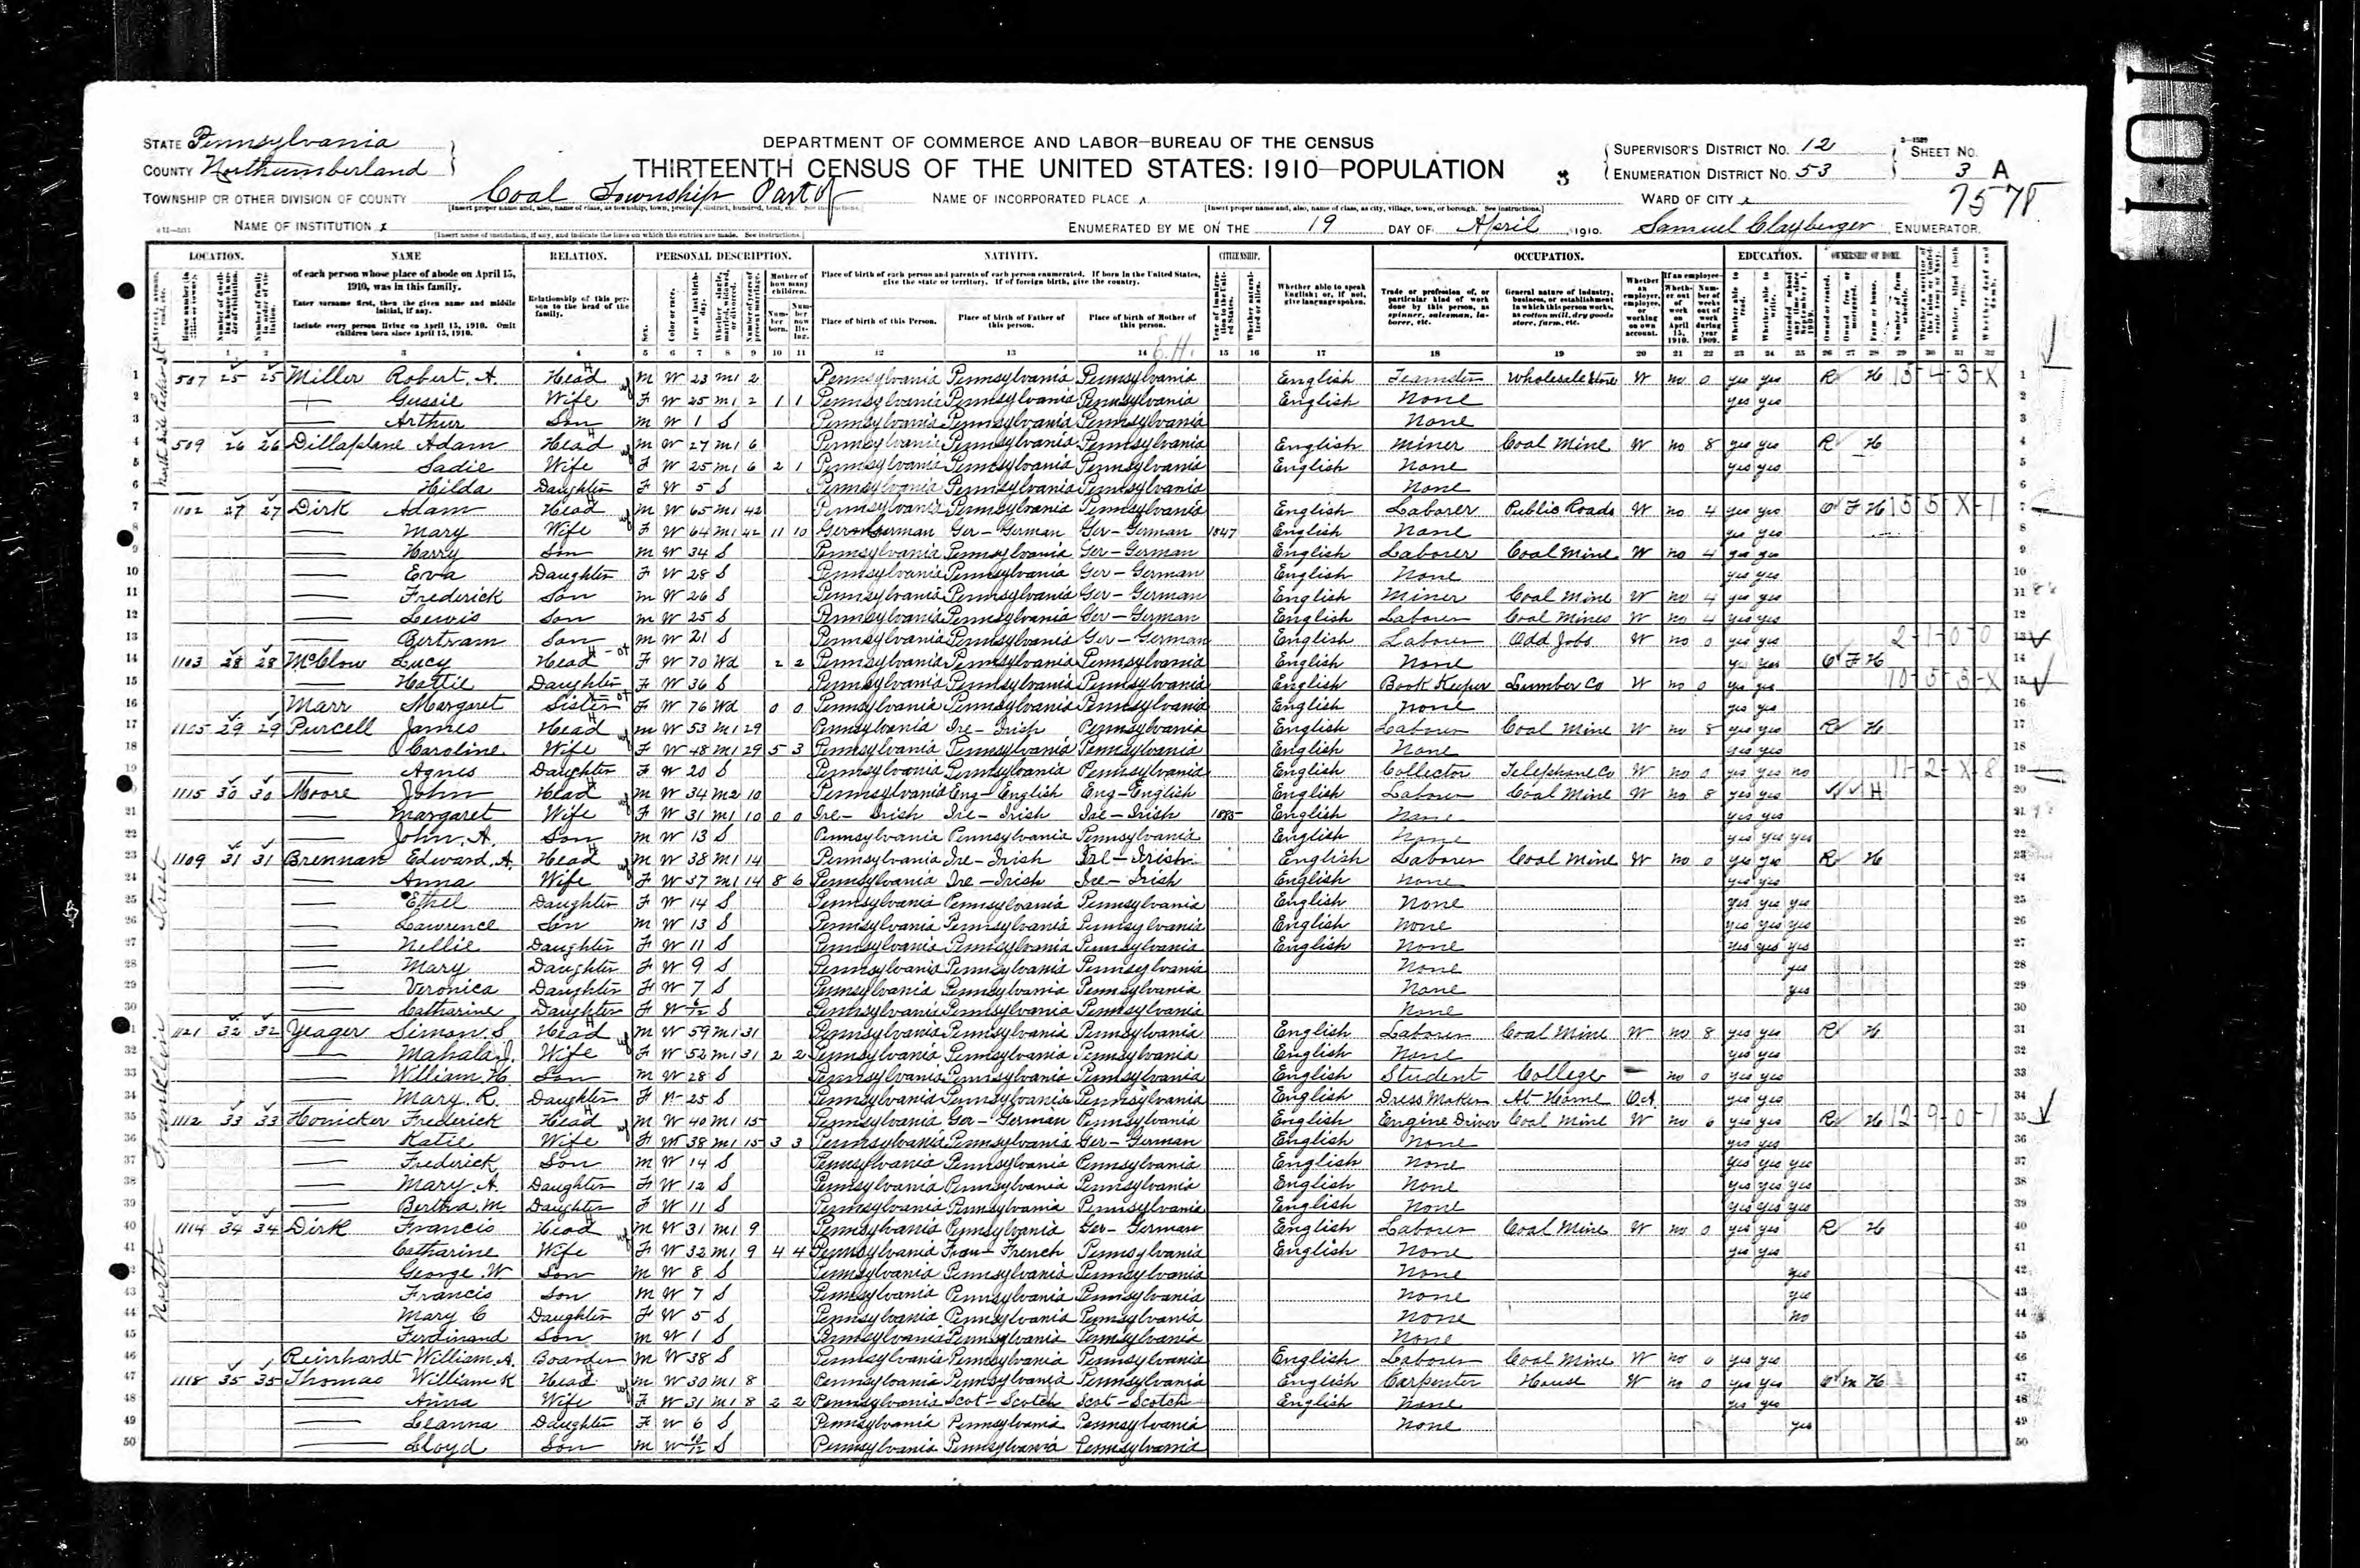 1101
STATE Pennsylvania
COUNTY Northumberland
DEPARTMENT OF COMMERCE AND LABOR—BUREAU OF THE CENSUS
THIRTEENTH CENSUS OF THE UNITED STATES: 1910—POPULATION
SUPERVISOR'S DISTRICT NO. 12
ENUMERATION DISTRICT NO. 53
SHEET NO.
3 A
7578
TOWNSHIP OR OTHER DIVISION OF COUNTY Coal Township Part of
NAME OF INCORPORATED PLACE x
WARD OF CITY x
NAME OF INSTITUTION x
ENUMERATED BY ME ON THE 19 DAY OF April, 1910. Samuel Clayberger, ENUMERATOR.
LOCATION. NAME RELATION. PERSONAL DESCRIPTION. NATIVITY. CITIZENSHIP. OCCUPATION. EDUCATION. OWNERSHIP OF HOME.
of each person whose place of abode on April 15, 1910, was in this family.
Enter surname first, then the given name and middle initial, if any.
Include every person living on April 15, 1910. Omit children born since April 15, 1910.
Relationship of this person to the head of the family.
Place of birth of each person and parents of each person enumerated. If born in the United States, give the state or territory. If of foreign birth, give the country.
Place of birth of this Person. Place of birth of Father of this person. Place of birth of Mother of this person.
Whether able to speak English; or, if not, give language spoken.
1 2 3 4 5 6 7 8 9 10 11 12 13 14 15 16 17 18 19 20 21 22 23 24 25 26 27 28 29 30 31 32
1 507 25 25 Miller Robert. A. Head M W 23 M1 2 Pennsylvania Pennsylvania Pennsylvania English Teamster Wholesale Store W no 0 yes yes R H 1
2 — Gussie Wife F W 25 M1 2 1 1 Pennsylvania Pennsylvania Pennsylvania English None yes yes 2
3 — Arthur Son M W 1 S Pennsylvania Pennsylvania Pennsylvania None 3
4 509 26 26 Dillaplane Adam Head M W 27 M1 6 Pennsylvania Pennsylvania Pennsylvania English Miner Coal Mine W no 8 yes yes R H 4
5 — Sadie Wife F W 25 M1 6 2 1 Pennsylvania Pennsylvania Pennsylvania English None yes yes 5
6 — Hilda Daughter F W 5 S Pennsylvania Pennsylvania Pennsylvania None 6
7 1102 27 27 Dirk Adam Head M W 65 M1 42 Pennsylvania Pennsylvania Pennsylvania English Laborer Public Roads W no 4 yes yes O F H 7
8 — Mary Wife F W 64 M1 42 11 10 Ger German Ger-German Ger-German 1847 English None yes yes 8
9 — Harry Son M W 34 S Pennsylvania Pennsylvania Ger-German English Laborer Coal Mine W no 4 yes yes 9
10 — Eva Daughter F W 28 S Pennsylvania Pennsylvania Ger-German English None yes yes 10
11 — Frederick Son M W 26 S Pennsylvania Pennsylvania Ger-German English Miner Coal Mine W no 4 yes yes 11
12 — Lewis Son M W 25 S Pennsylvania Pennsylvania Ger-German English Laborer Coal Mines W no 4 yes yes 12
13 — Bertram Son M W 21 S Pennsylvania Pennsylvania Ger-German English Laborer Odd Jobs W no 0 yes yes 13
14 1103 28 28 McClow Lucy Head F W 70 Wd 2 2 Pennsylvania Pennsylvania Pennsylvania English None yes yes O F H 14
15 — Hattie Daughter F W 36 S Pennsylvania Pennsylvania Pennsylvania English Book Keeper Lumber Co W no 0 yes yes 15
16 Marr Margaret Sister F W 76 Wd 0 0 Pennsylvania Pennsylvania Pennsylvania English None yes yes 16
17 1105 29 29 Purcell James Head M W 53 M1 29 Pennsylvania Ire-Irish Pennsylvania English Laborer Coal Mine W no 8 yes yes R H 17
18 — Caroline Wife F W 48 M1 29 5 3 Pennsylvania Pennsylvania Pennsylvania English None yes yes 18
19 — Agnes Daughter F W 20 S Pennsylvania Pennsylvania Pennsylvania English Collector Telephone Co W no 0 yes yes no 19
20 1115 30 30 Moore John Head M W 34 M2 10 Pennsylvania Eng-English Eng-English English Laborer Coal Mine W no 8 yes yes H 20
21 — Margaret Wife F W 31 M1 10 0 0 Ire-Irish Ire-Irish Ire-Irish English None yes yes 21
22 — John. A. Son M W 13 S Pennsylvania Pennsylvania Pennsylvania English None yes yes yes 22
23 1109 31 31 Brennan Edward. A. Head M W 38 M1 14 Pennsylvania Ire-Irish Ire-Irish English Laborer Coal Mine W no 0 yes yes R H 23
24 — Anna Wife F W 37 M1 14 8 6 Pennsylvania Ire-Irish Ire-Irish English None yes yes 24
25 — Ethel Daughter F W 14 S Pennsylvania Pennsylvania Pennsylvania English None yes yes yes 25
26 — Lawrence Son M W 13 S Pennsylvania Pennsylvania Pennsylvania English None yes yes yes 26
27 — Nellie Daughter F W 11 S Pennsylvania Pennsylvania Pennsylvania English None yes yes yes 27
28 — Mary Daughter F W 9 S Pennsylvania Pennsylvania Pennsylvania None yes 28
29 — Veronica Daughter F W 7 S Pennsylvania Pennsylvania Pennsylvania None yes 29
30 — Catharine Daughter F W S Pennsylvania Pennsylvania Pennsylvania None 30
31 1121 32 32 Yeager Simon. S Head M W 59 M1 31 Pennsylvania Pennsylvania Pennsylvania English Laborer Coal Mine W no 8 yes yes R H 31
32 — Mahala J. Wife F W 52 M1 31 2 2 Pennsylvania Pennsylvania Pennsylvania English None yes yes 32
33 — William. H. Son M W 28 S Pennsylvania Pennsylvania Pennsylvania English Student College — no 0 yes yes 33
34 — Mary. R. Daughter F W 25 S Pennsylvania Pennsylvania Pennsylvania English Dress Maker At Home O.A. yes yes 34
35 1112 33 33 Honicker Frederick Head M W 40 M1 15 Pennsylvania Ger-German Pennsylvania English Engine Driver Coal Mine W no 6 yes yes R H 35
36 — Katie Wife F W 38 M1 15 3 3 Pennsylvania Pennsylvania Ger-German English None yes yes 36
37 — Frederick Son M W 14 S Pennsylvania Pennsylvania Pennsylvania English None yes yes yes 37
38 — Mary. A. Daughter F W 12 S Pennsylvania Pennsylvania Pennsylvania English None yes yes yes 38
39 — Bertha. M Daughter F W 11 S Pennsylvania Pennsylvania Pennsylvania English None yes yes yes 39
40 1114 34 34 Dirk Francis Head M W 31 M1 9 Pennsylvania Pennsylvania Ger-German English Laborer Coal Mine W no 0 yes yes R H 40
41 — Catharine Wife F W 32 M1 9 4 4 Pennsylvania Fran-French Pennsylvania English None yes yes 41
42 George. W Son M W 8 S Pennsylvania Pennsylvania Pennsylvania None yes 42
43 Francis Son M W 7 S Pennsylvania Pennsylvania Pennsylvania None yes 43
44 Mary C Daughter F W 5 S Pennsylvania Pennsylvania Pennsylvania None no 44
45 Ferdinand Son M W 1 S Pennsylvania Pennsylvania Pennsylvania None 45
46 Reinhardt William. A. Boarder M W 38 S Pennsylvania Pennsylvania Pennsylvania English Laborer Coal Mine W no 0 yes yes 46
47 1118 35 35 Thomas William K Head M W 30 M1 8 Pennsylvania Pennsylvania Pennsylvania English Carpenter House W no 0 yes yes O M H 47
48 — Anna Wife F W 31 M1 8 2 2 Pennsylvania Scot-Scotch Scot-Scotch English None yes yes 48
49 — Leanna Daughter F W 6 S Pennsylvania Pennsylvania Pennsylvania None yes 49
50 — Lloyd Son M W S Pennsylvania Pennsylvania Pennsylvania 50
North Franklin Street